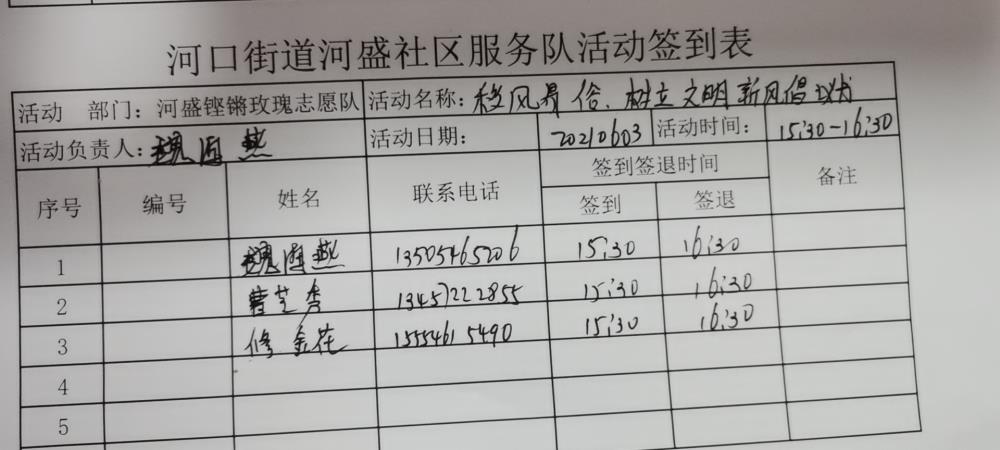 河口街道河盛社区服务队活动签到表
活动 部门：河盛铿锵玫瑰志愿队 活动名称：移风易俗、树立文明新风倡议书
活动负责人：魏海燕 活动日期： 20210603 活动时间： 15:30-16:30
序号 编号 姓名 联系电话 签到签退时间 备注
签到 签退
1 魏海燕 13505465206 15:30 16:30
2 曹芝秀 13457222855 15:30 16:30
3 修金花 15554615490 15:30 16:30
4
5